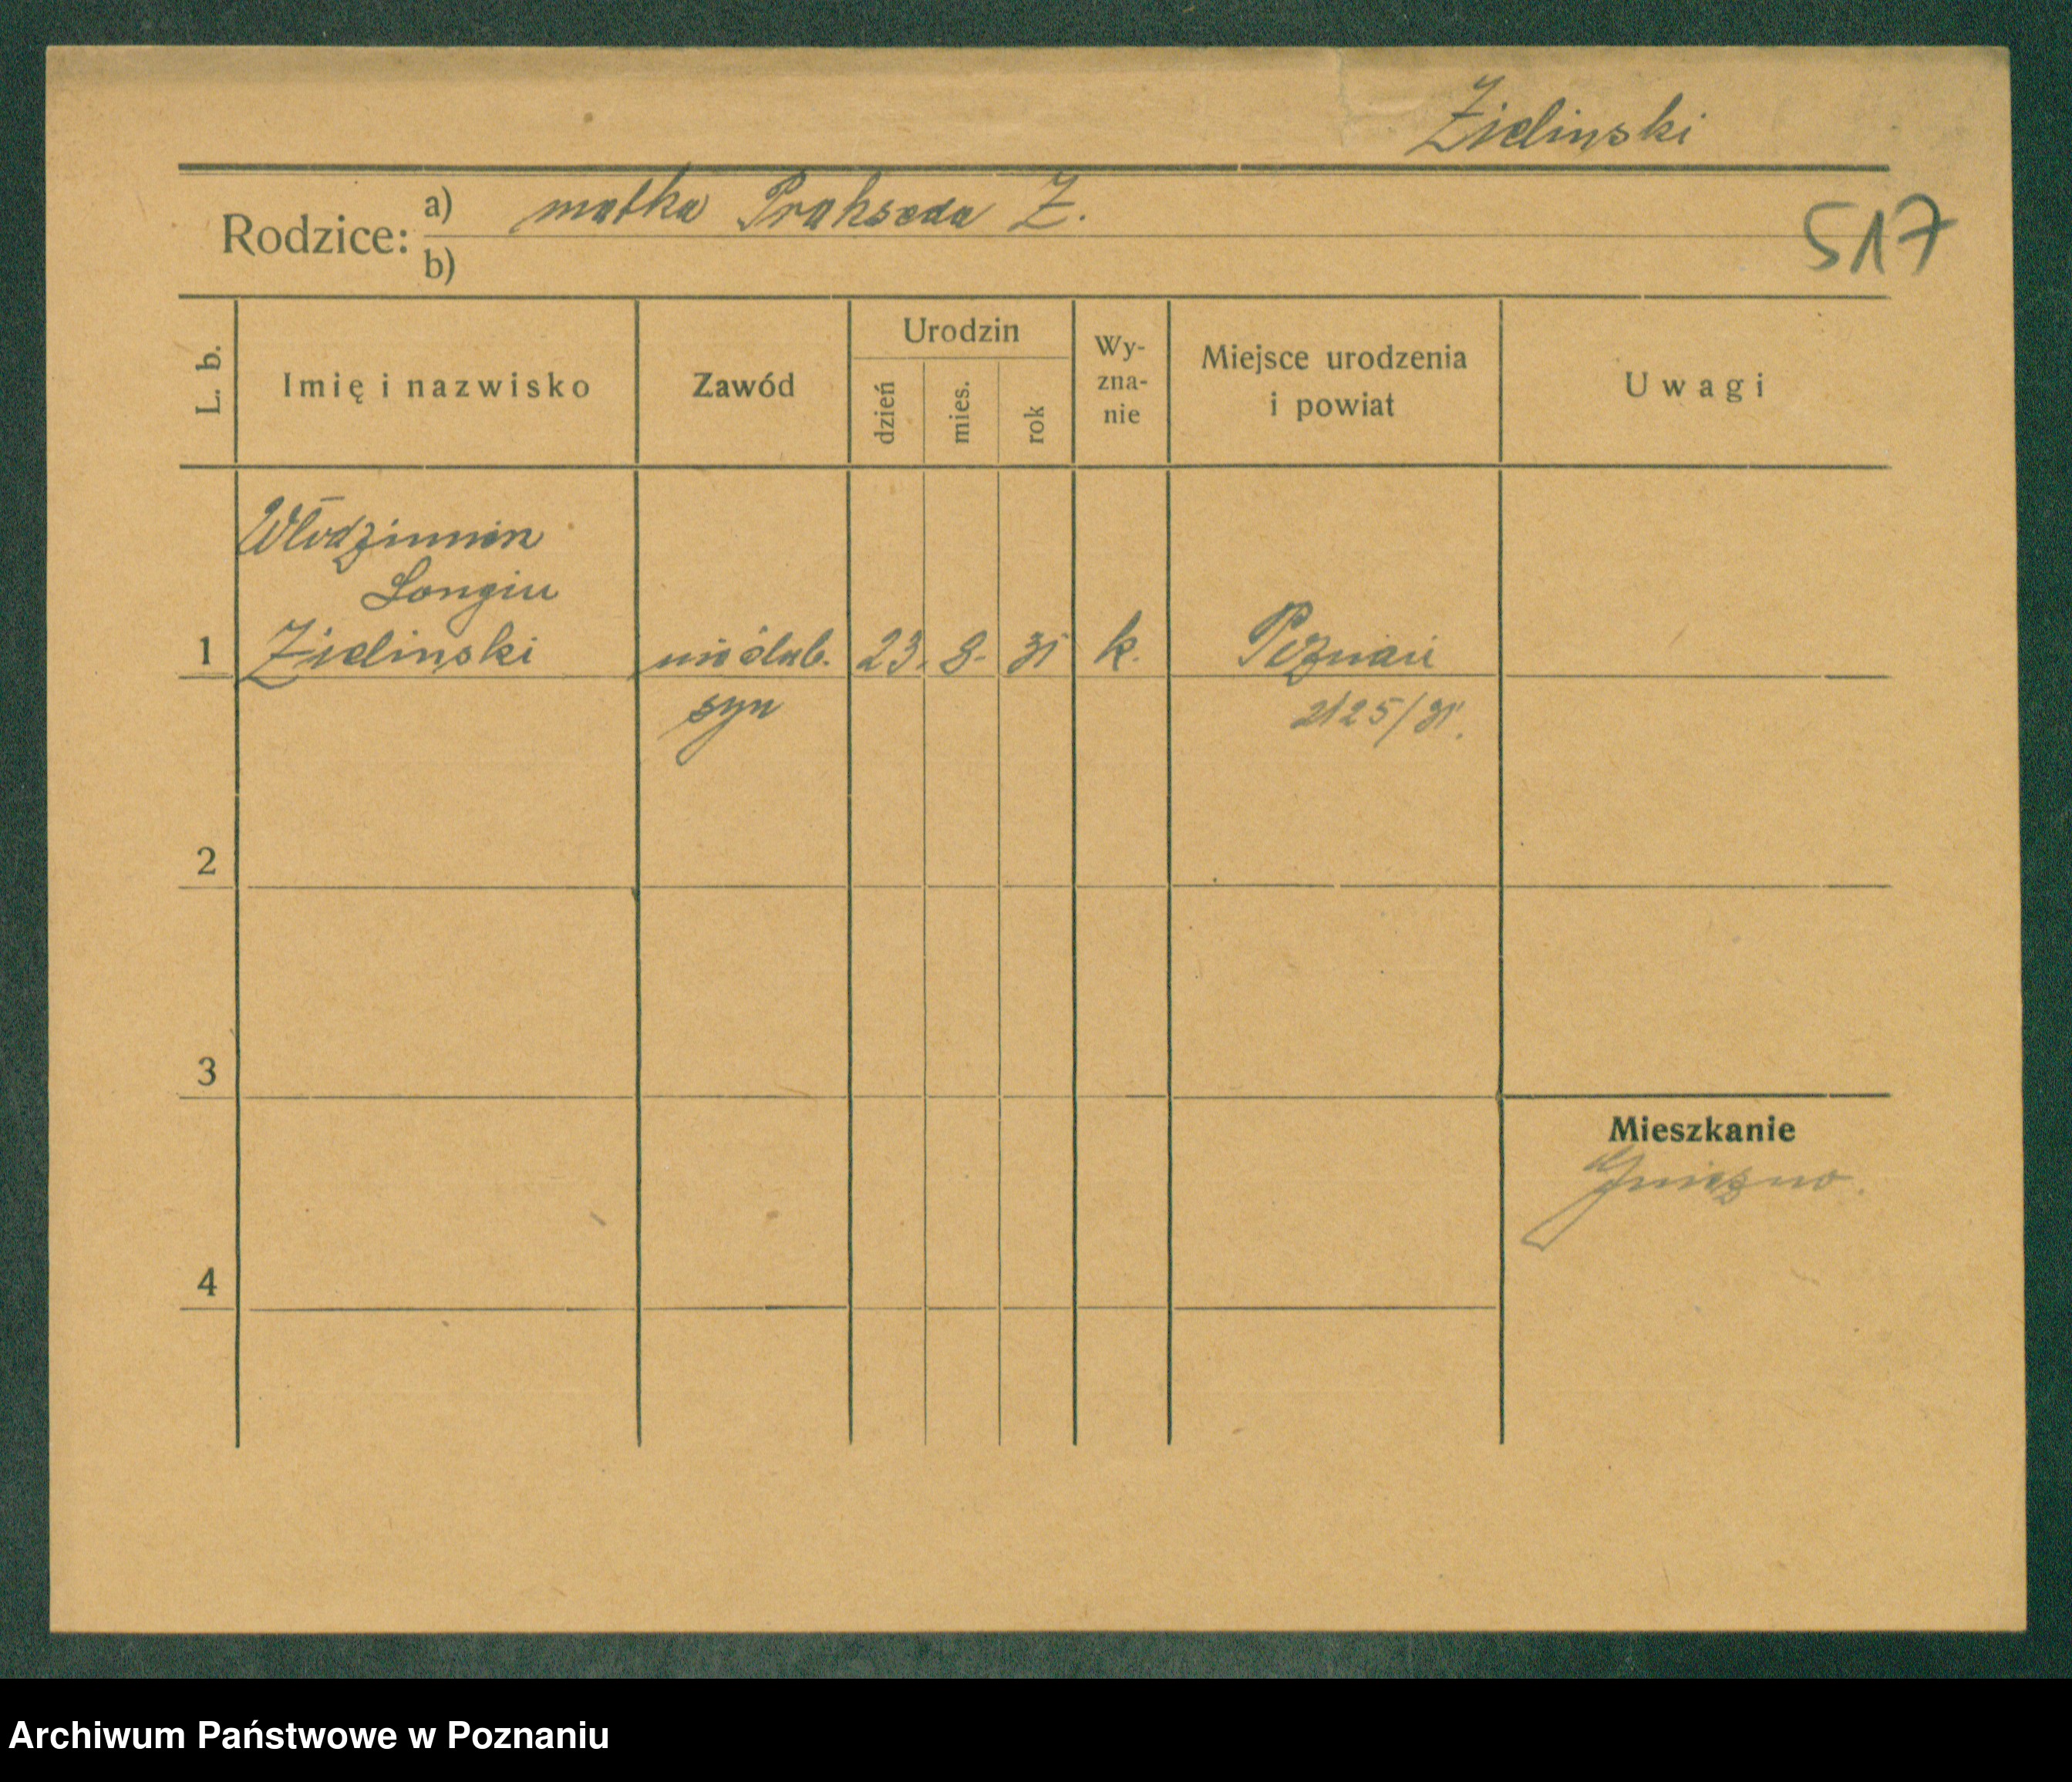 Zielinski
Rodzice: a) matka Prakseda Z.
b)
517
L. b.
Imię i nazwisko
Zawód
Urodzin
dzień
mies.
rok
Wy-
zna-
nie
Miejsce urodzenia
i powiat
Uwagi
Włodzimierz
Longin
1 Zielinski nieślub. 23. 8. 31 k. Poznań
syn 2125/31.
2
3
Mieszkanie
Gniezno.
4
Archiwum Państwowe w Poznaniu